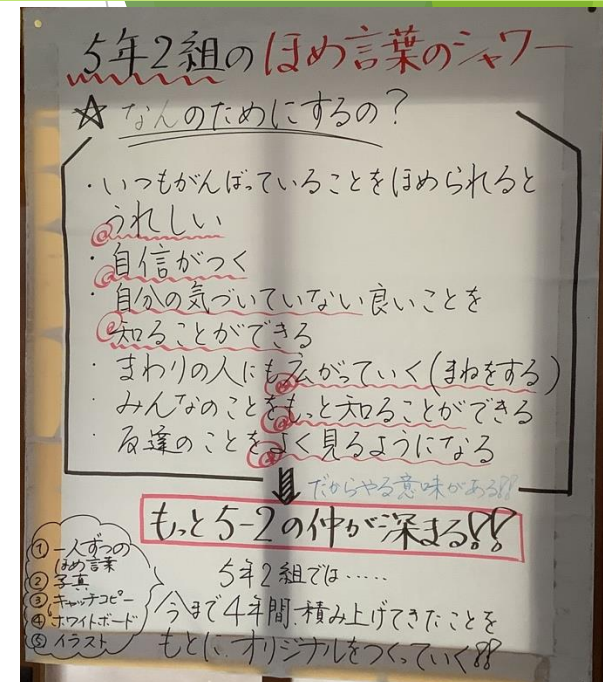 5年2組のほめ言葉のシャワー
☆ なんのためにするの?
・いつもがんばっていることをほめられると
うれしい
・自信がつく
・自分の気づいていない良いことを
知ることができる
・まわりの人にも広がっていく(まねをする)
・みんなのことをもっと知ることができる
・友達のことをよく見るようになる
だからやる意味がある!!
もっと5-2の仲が深まる!!
① 一人ずつの
ほめ言葉
② 写真
③ キャッチコピー
④ ホワイトボード
⑤ イラスト
5年2組では……
今まで4年間積み上げてきたことを
もとに、オリジナルをつくっていく!!